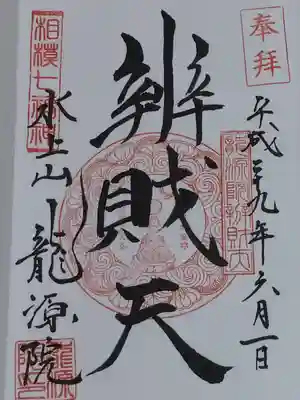 奉拝
平成二十九年六月一日
辨財天
相模七福神
水上山 龍源院